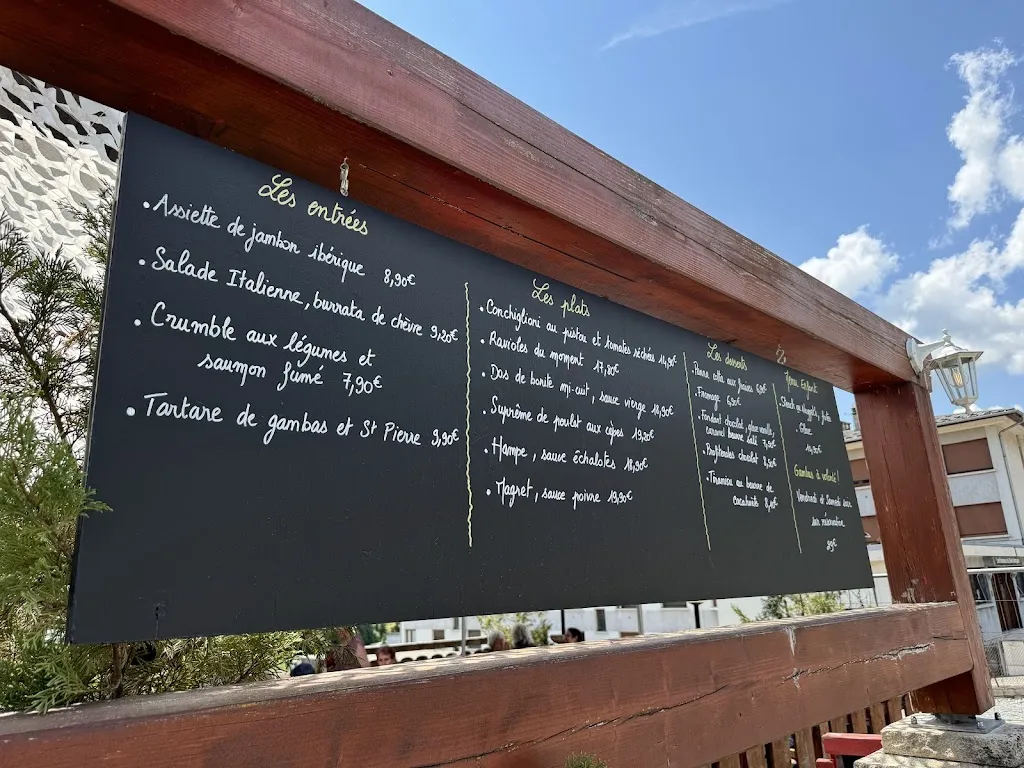 Les entrées
• Assiette de jambon ibérique 8,90€
• Salade Italienne, burrata de chèvre 9,20€
• Crumble aux légumes et
saumon fumé 7,90€
• Tartare de gambas et St Pierre 9,90€
Les plats
• Conchiglioni au pistou et tomates séchées 14,90€
• Ravioles du moment 17,80€
• Dos de bonite mi-cuit, sauce vierge 18,90€
• Suprême de poulet aux cèpes 19,20€
• Hampe, sauce échalotes 18,90€
• Magret, sauce poivre 19,90€
Les desserts
• Panna cotta aux fraises
• Fromage 6,90€
• Fondant chocolat, glace vanille,
caramel beurre salé 7,90€
• Profiteroles chocolat 8,50€
• Tiramisu au beurre de
cacahuète
Menu Enfant
Steack ou nuggets, frites
Glace
Gambas à volonté!
Vendredi et Samedi soirs
sur réservation